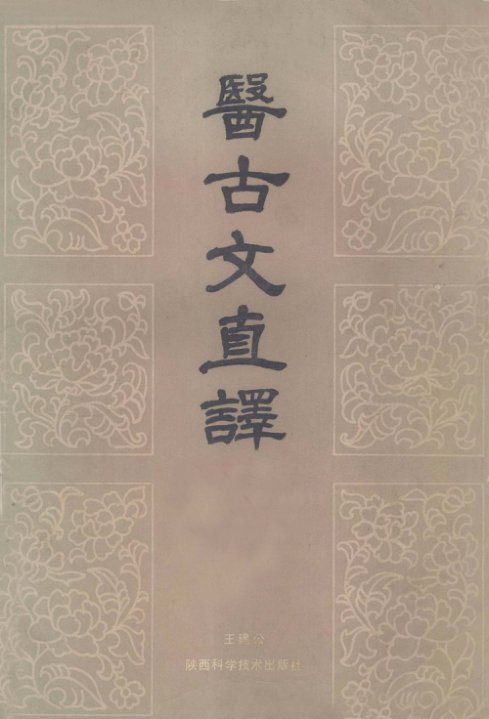 醫古文直譯
王 公
陕西科学技术出版社